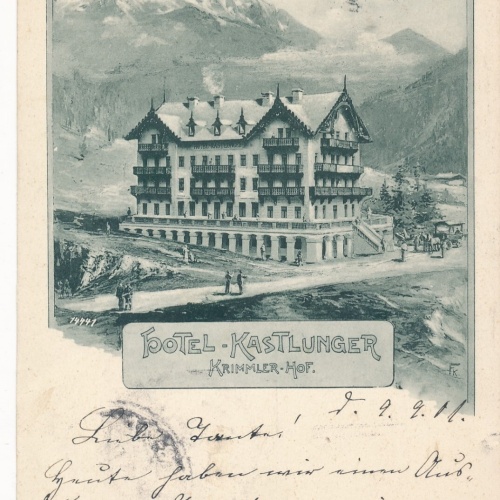 14441
HOTEL-KASTLUNGER
KRIMMLER-HOF.
FK
d. 9. 9. 01.
Liebe Tante!
Heute haben wir einen Aus-